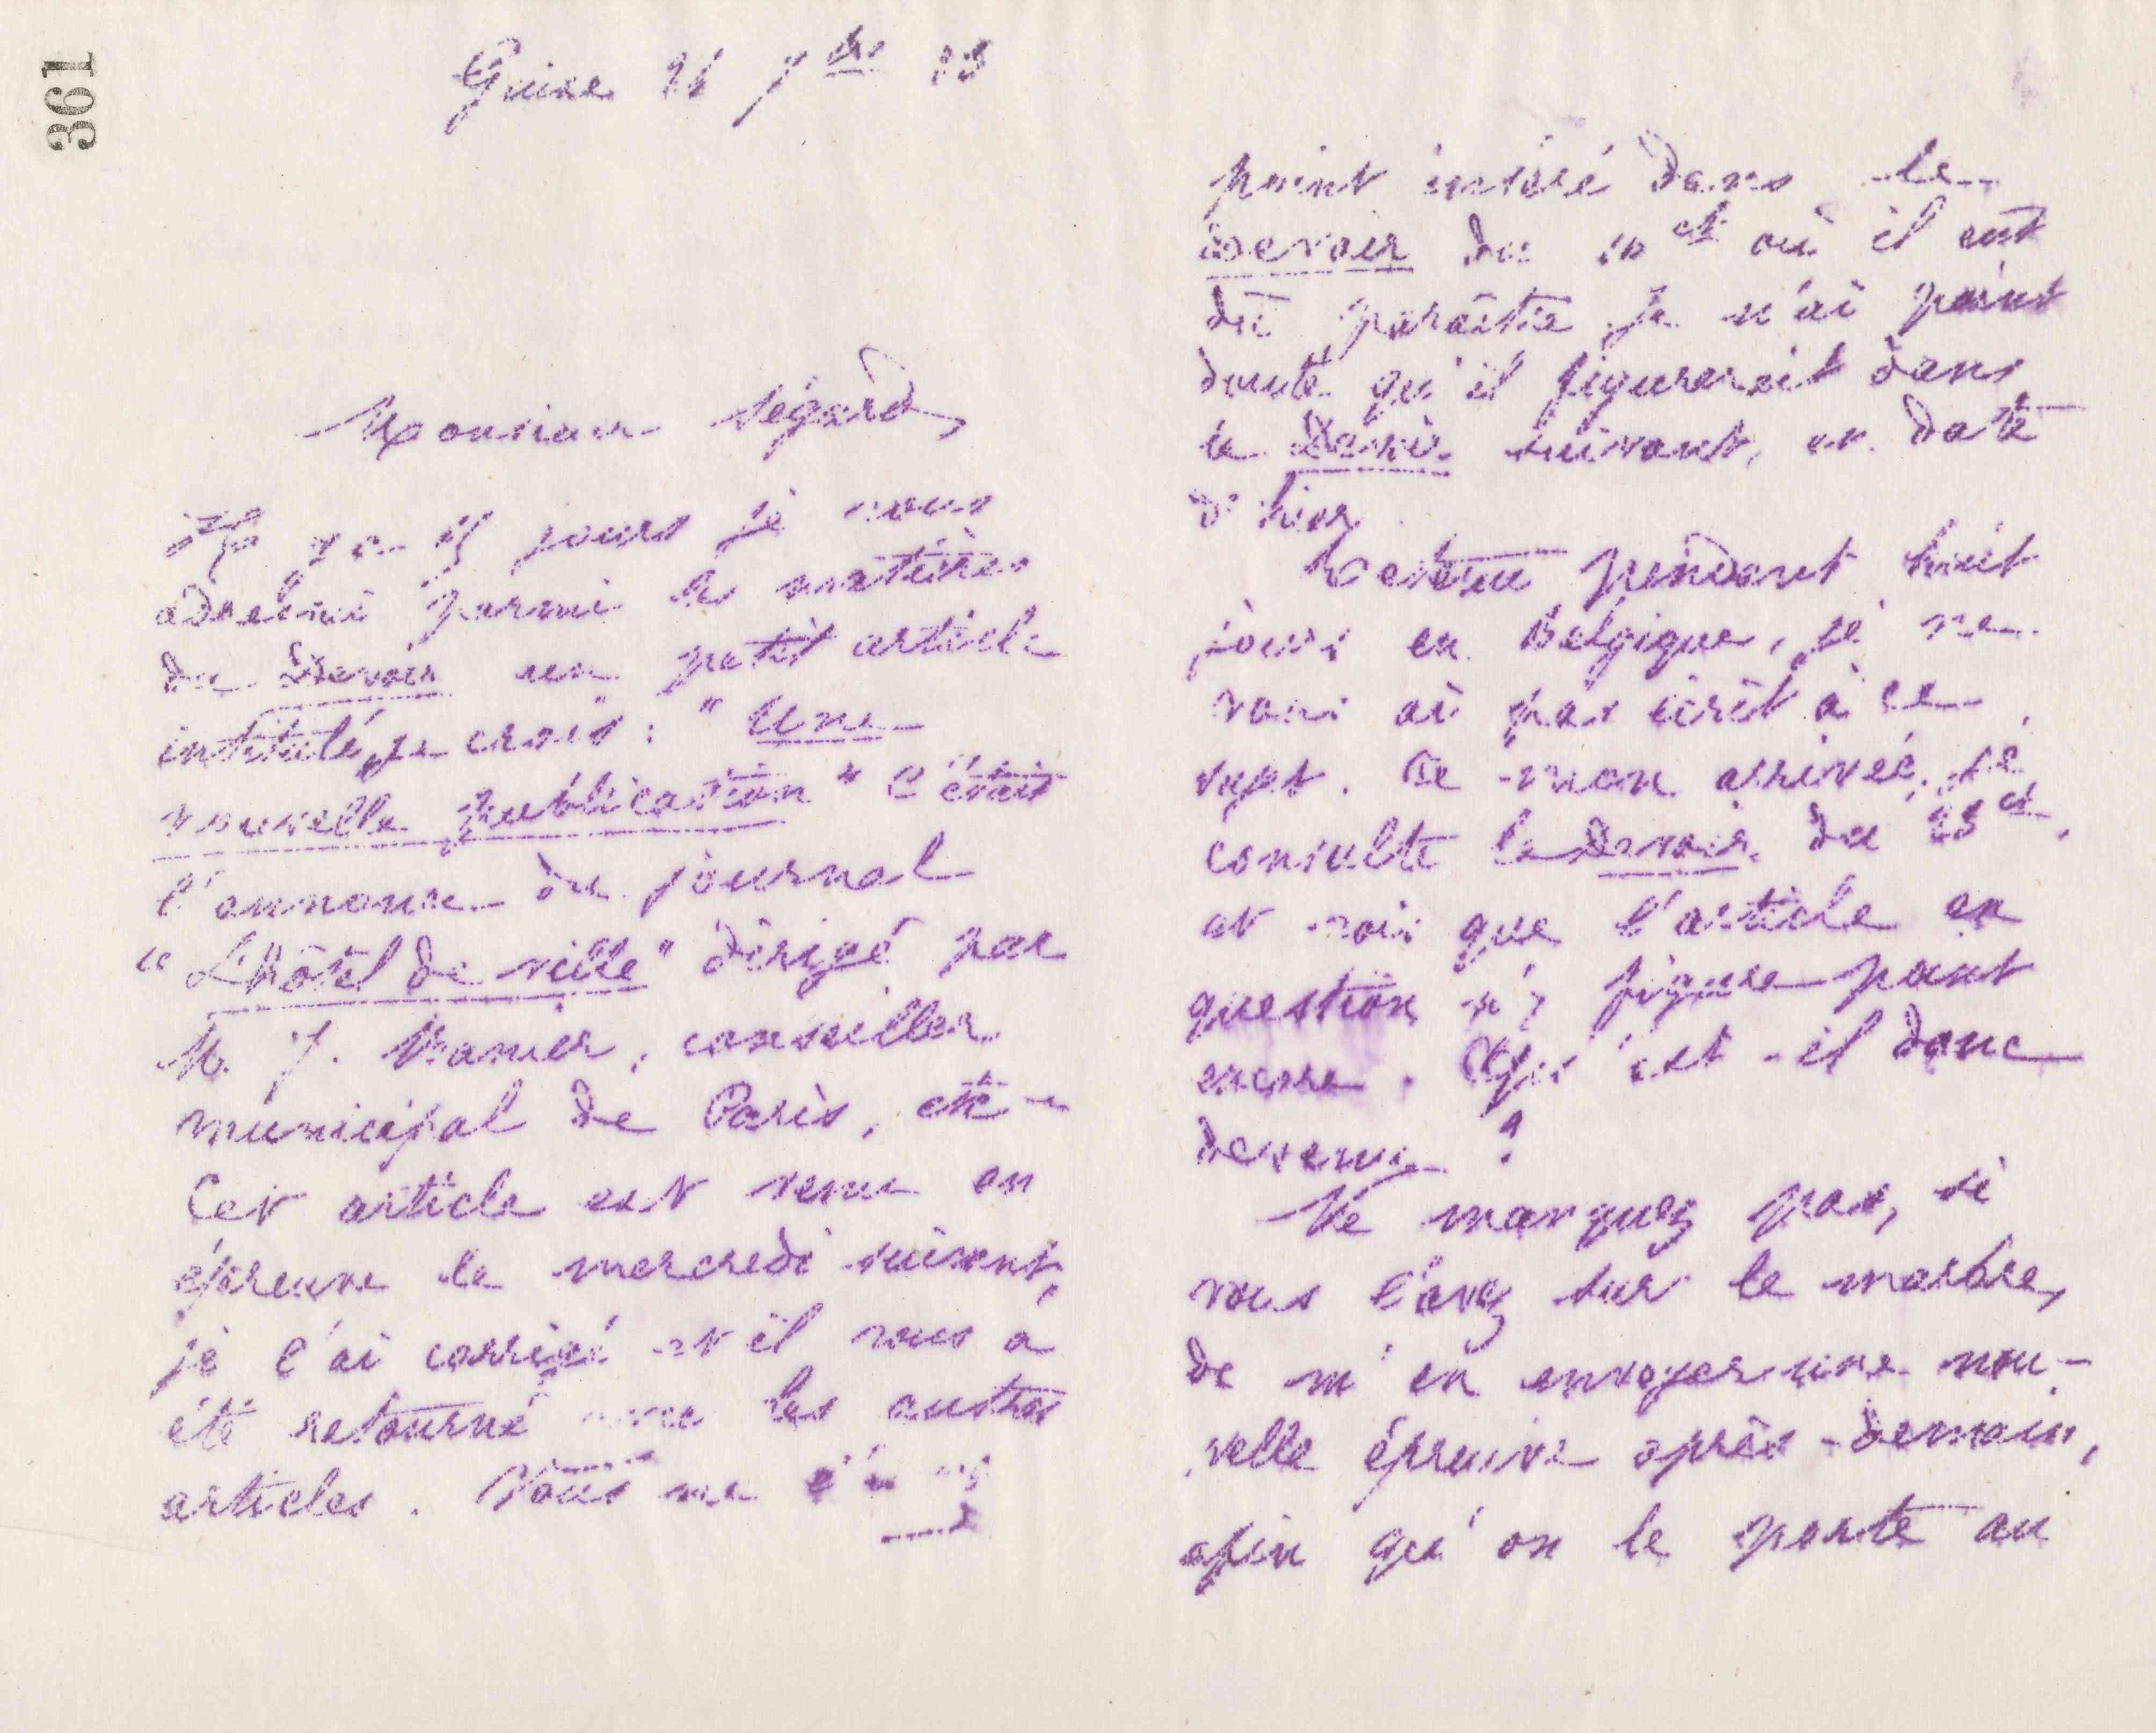 361
Guise 7bre
Monsieur Ségard,
Il y a 15 jours je vous
adressai parmi les matières
du Devoir un petit article
intitulé, je crois : " Une
nouvelle publication " C'était
l'annonce du journal
" L'hôtel de ville " dirigé par
M. J. Manier, conseiller
municipal de Paris, etc -
Cet article est venu en
épreuve le mercredi suivant,
je l'ai corrigé et il vous a
été retourné avec les autres
articles. Vous ne
point inséré dans le
Devoir du 10 ct où il eut
dû paraître je n'ai point
douté qu'il figurerait dans
le Devoir suivant, en date
d'hier.
Retenu pendant huit
jours en Belgique, je ne
vous ai pas écrit à ce
sujet. De mon arrivée, je
consulte le Devoir du 23 ct,
et vois que l'article en
question n'y figure point
encore. Qu'est-il donc
devenu ?
Ne manquez pas, si
vous l'avez sur le marbre,
de m'en envoyer une nou-
velle épreuve après-demain,
afin qu'on le porte au